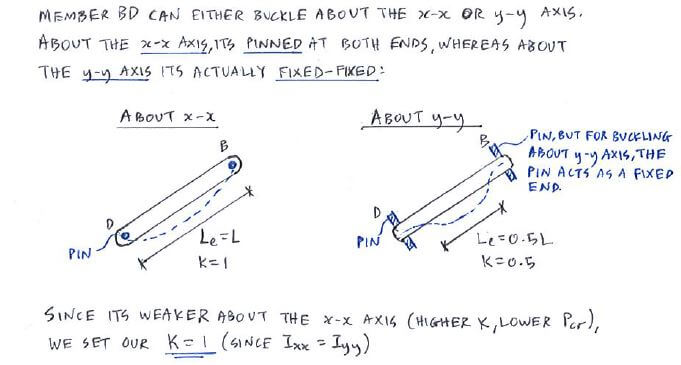 MEMBER BD CAN EITHER BUCKLE ABOUT THE x-x OR y-y AXIS.
ABOUT THE x-x AXIS, ITS PINNED AT BOTH ENDS, WHEREAS ABOUT
THE y-y AXIS ITS ACTUALLY FIXED-FIXED:
ABOUT x-x
B
D
PIN
Le=L
K=1
ABOUT y-y
B
PIN, BUT FOR BUCKLING
ABOUT y-y AXIS, THE
PIN ACTS AS A FIXED
END.
D
PIN
Le=0.5L
K=0.5
SINCE ITS WEAKER ABOUT THE x-x AXIS (HIGHER K, LOWER Pcr),
WE SET OUR K=1 (SINCE Ixx = Iyy)